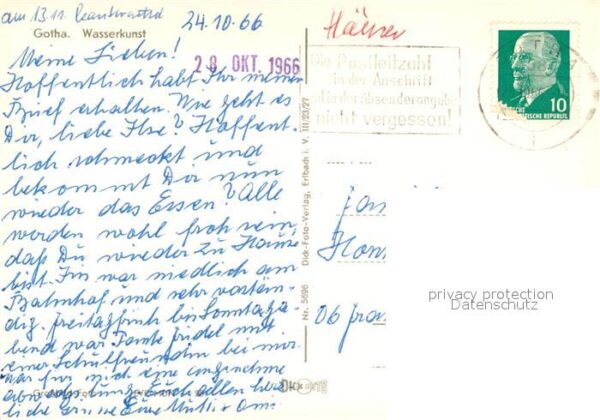 am 13.11. beantwortet
24.10.66
Häuser
Gotha. Wasserkunst
28. OKT. 1966
Meine Lieben!
Hoffentlich habt Ihr meinen
Brief erhalten. Wie geht es
Dir, liebe Ilse? Hoffent-
lich schmeckt und
bekommt Dir nun
wieder das Essen? Alle
werden wohl froh sein,
daß Du wieder zu Hause
bist. Jin war niedlich am
Bahnhof und sehr verstän-
dig. Freitagfrüh bis Sonntaga-
bend war Tante Friedel mit
einer Schulfreundin bei mir
war für mich eine angenehme
Abwechslung. Euch allen herz
liche Grüsse Eure Mutti + Omi
Die Postleitzahl
in der Anschrift
und in der Absenderangabe
nicht vergessen!
10
DEUTSCHE
DEMOKRATISCHE REPUBLIK
Nr. 5696 Dick-Foto-Verlag, Erlbach i. V. III/23/27
Fam
06
privacy protection
Datenschutz